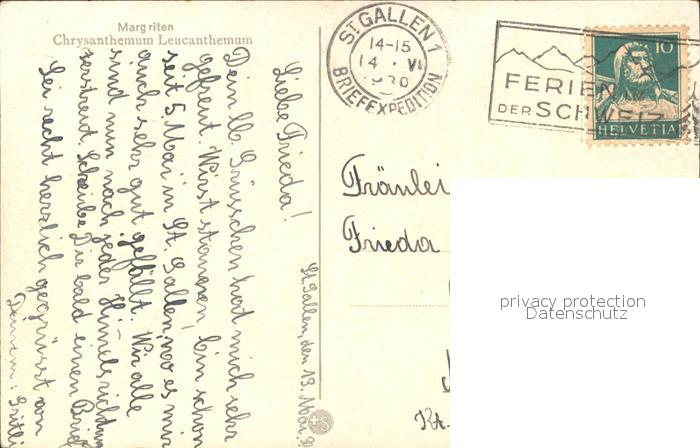 Margriten
Chrysanthemum Leucanthemum
St. Gallen, den 13. Mai 3
Liebe Frieda!
Dein lb. Grüsschen hat mich sehr
gefreut. Wirst staunen, bin schon
seit 5. Mai in St. Gallen, wo es mir
auch sehr gut gefällt. Wir alle
sind nun nach jeder Himmelsrichtung
zerstreut. Schreibe Dir bald einen Brief
Sei recht herzlich gegrüsst von
Deinem: Gritli
ST GALLEN 1
14-15
14. VI
1930
BRIEFEXPEDITION
FERIEN
DER SCHWEIZ
10
HELVETIA
Fräulei
Frieda
Kt.
+S
privacy protection
Datenschutz